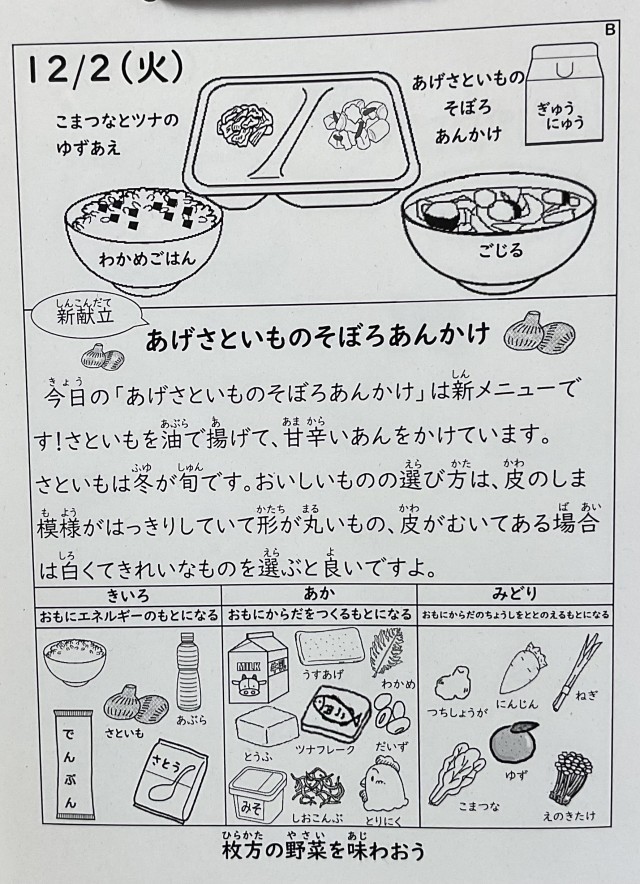 B
12/2(火)
こまつなとツナの
ゆずあえ
あげさといもの
そぼろ
あんかけ
ぎゅう
にゅう
わかめごはん
ごじる
しんこんだて
新献立
あげさといものそぼろあんかけ
きょう しん
今日の「あげさといものそぼろあんかけ」は新メニューで
あぶら あ あま から
す!さといもを油で揚げて、甘辛いあんをかけています。
ふゆ しゅん えら かた かわ
さといもは冬が旬です。おいしいものの選び方は、皮のしま
も よう かたち まる かわ ば あい
模様がはっきりしていて形が丸いもの、皮がむいてある場合
しろ えら よ
は白くてきれいなものを選ぶと良いですよ。
きいろ
おもにエネルギーのもとになる
さといも
あぶら
でんぷん
さとう
あか
おもにからだをつくるもとになる
MILK
牛乳
うすあげ
わかめ
とうふ
ツナフレーク
だいず
みそ
しおこんぶ
とりにく
みどり
おもにからだのちょうしをととのえるもとになる
つちしょうが
にんじん
ねぎ
こまつな
ゆず
えのきたけ
ひらかた やさい あじ
枚方の野菜を味わおう